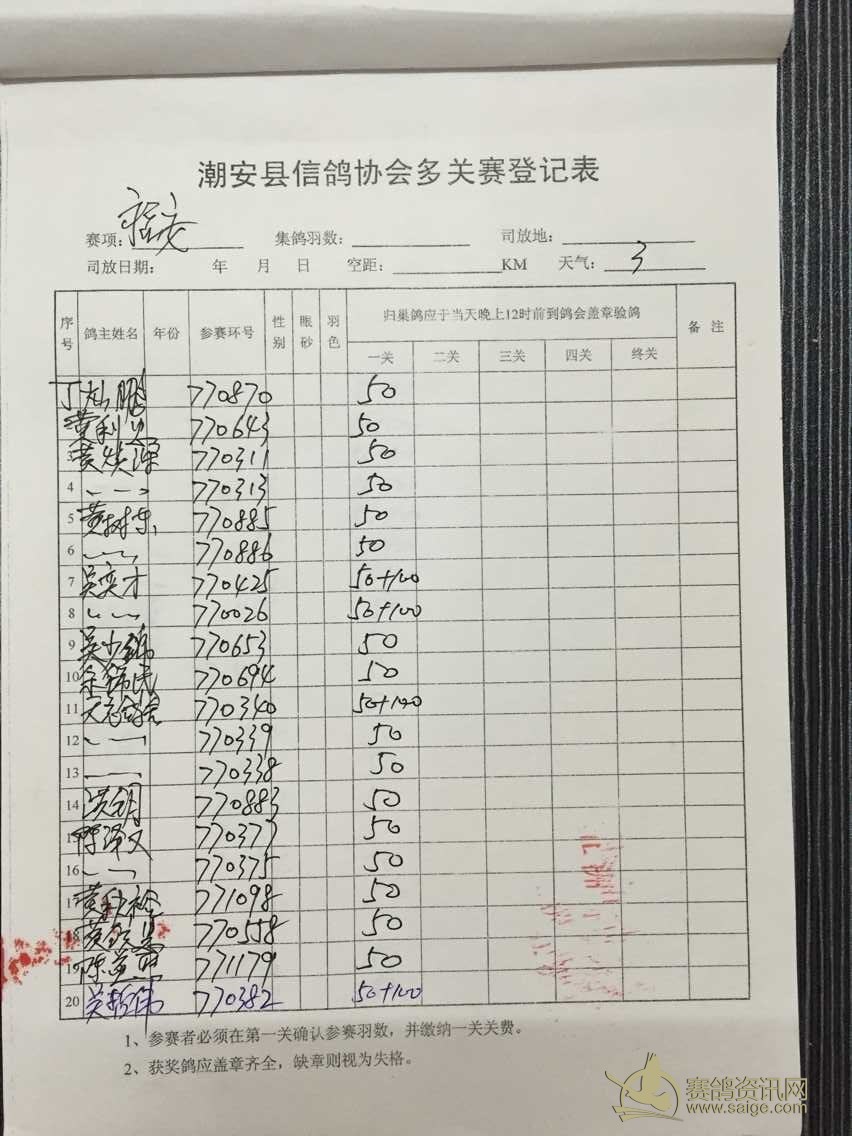 潮安县信鸽协会多关赛登记表
赛项: 集鸽羽数: 司放地:
司放日期: 年 月 日 空距: KM 天气: 3
序号 鸽主姓名 年份 参赛环号 性别 眼砂 羽色 归巢鸽应于当天晚上12时前到鸽会盖章验鸽 备 注
一关 二关 三关 四关 终关
丁 鹏 770870 50
黄利 770643 50
3 黄 770311 50
4 770313 50
5 黄树 770885 50
6 770886 50
7 吴奕才 770425 50+100
8 770026 50+100
9 吴少 770653 50
10 770694 50
11 770340 50+100
12 770339 50
13 770338 50
14 洪 770883 50
15 陈 770377 50
16 770375 50
17 黄 771098 50
18 黄 770558 50
19 陈 771179 50
20 吴 伟 770382 50+100
1、参赛者必须在第一关确认参赛羽数，并缴纳一关关费。
2、获奖鸽应盖章齐全，缺章则视为失格。
赛鸽资讯网
www.saige.com